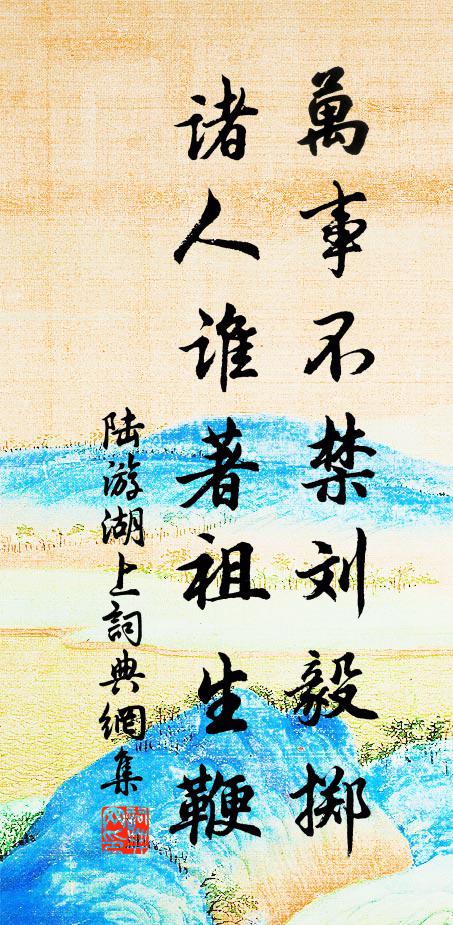 萬事不禁刘毅掷
诸人谁著祖生鞭
陆游湖上詞典網集